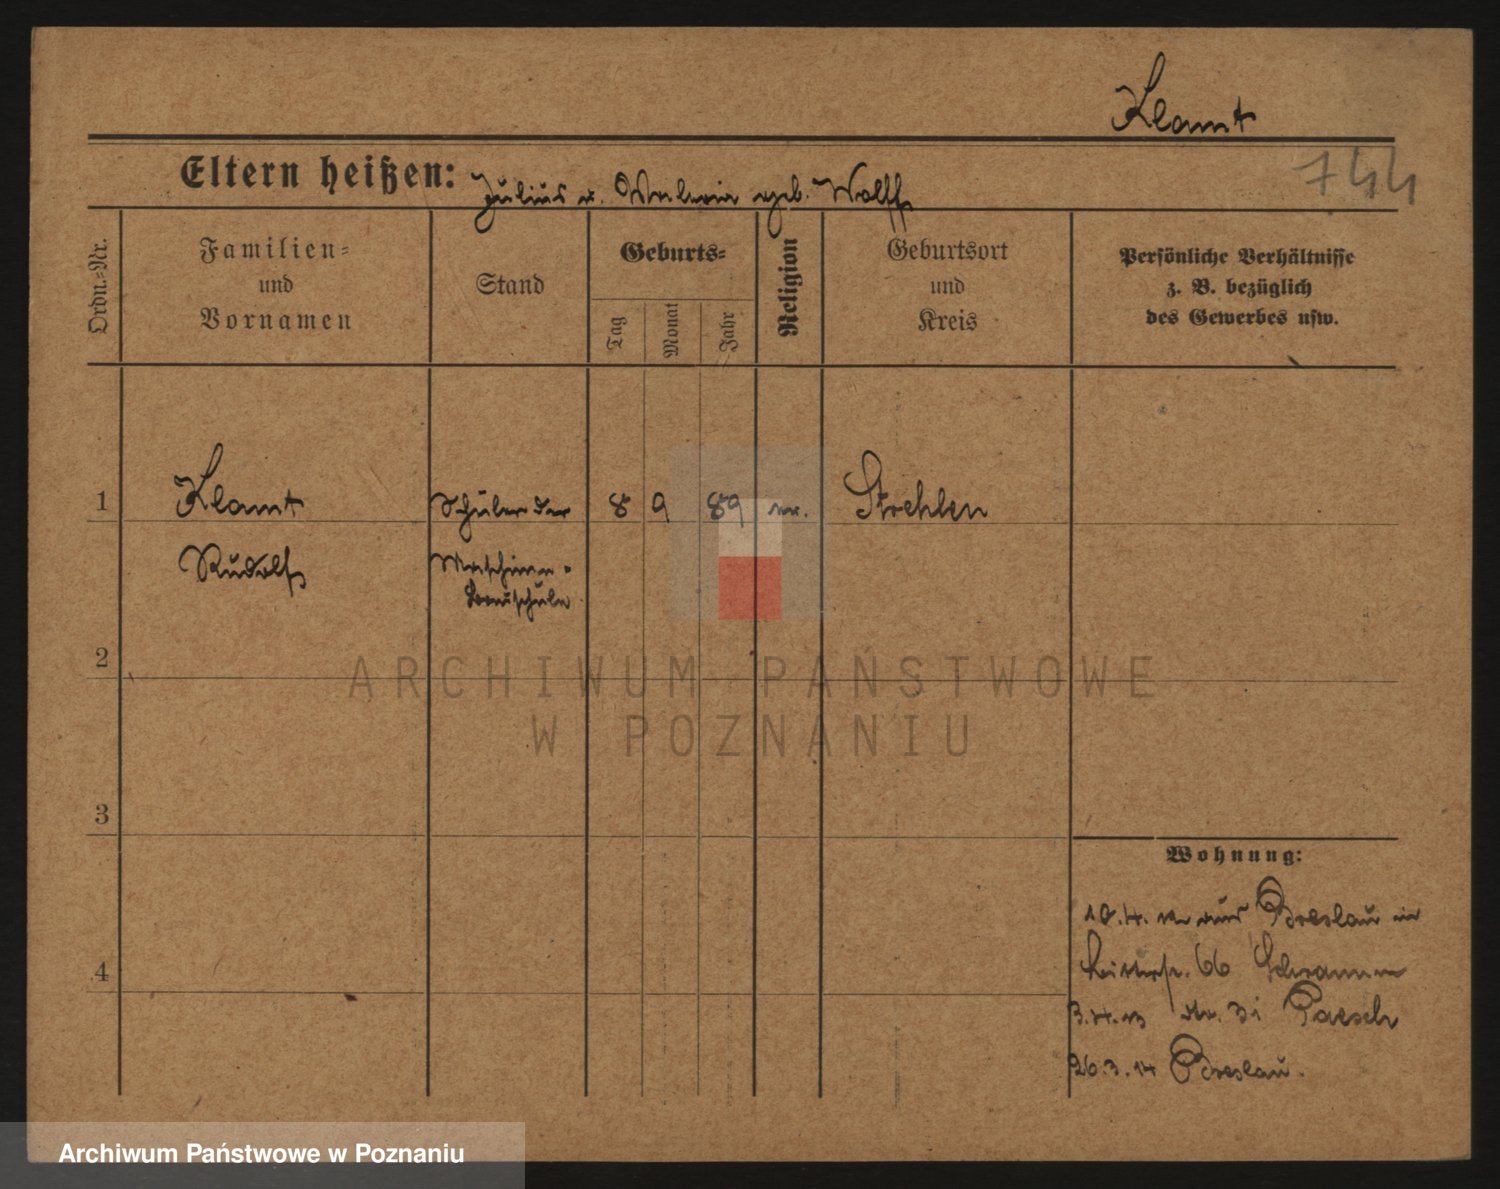 Klamt
744
Eltern heißen: Julius u. Valeria geb. Wolff
Ordn.-Nr.
Familien-
und
Vornamen
Stand
Geburts-
Tag
Monat
Jahr
Religion
Geburtsort
und
Kreis
Persönliche Verhältnisse
z. B. bezüglich
des Gewerbes usw.
1
Klamt
Rudolf
Schüler der
Maschinen-
bauschule
8 9 89
Strehlen
2
3
4
Wohnung:
10.4. aus Breslau in
66 Schramm
3.4.13 31 Paesch
26.3.14 Breslau.
ARCHIWUM PAŃSTWOWE
W POZNANIU
Archiwum Państwowe w Poznaniu